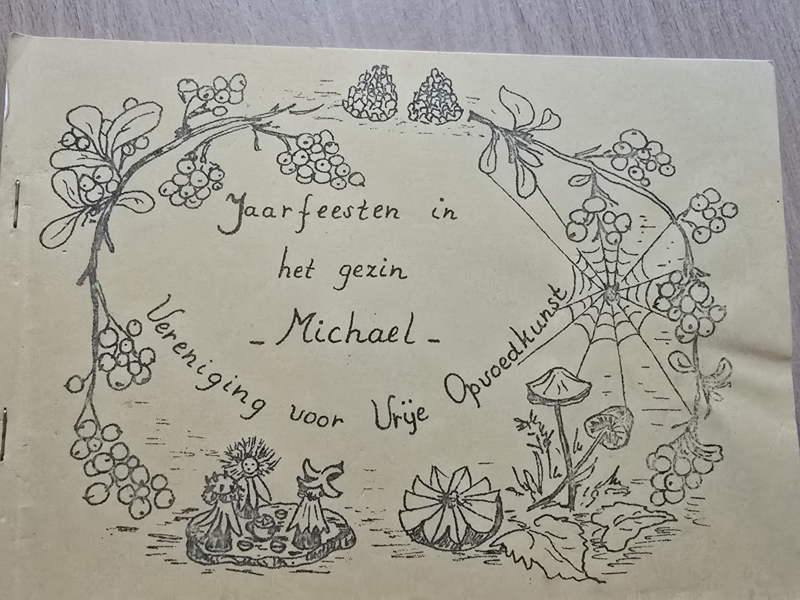 Jaarfeesten in
het gezin
- Michael -
Vereniging voor Vrije Opvoedkunst